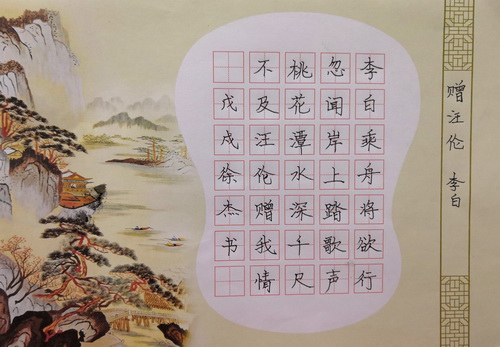 赠汪伦 李白
李白乘舟将欲行
忽闻岸上踏歌声
桃花潭水深千尺
不及汪伦赠我情
戊戌徐杰书